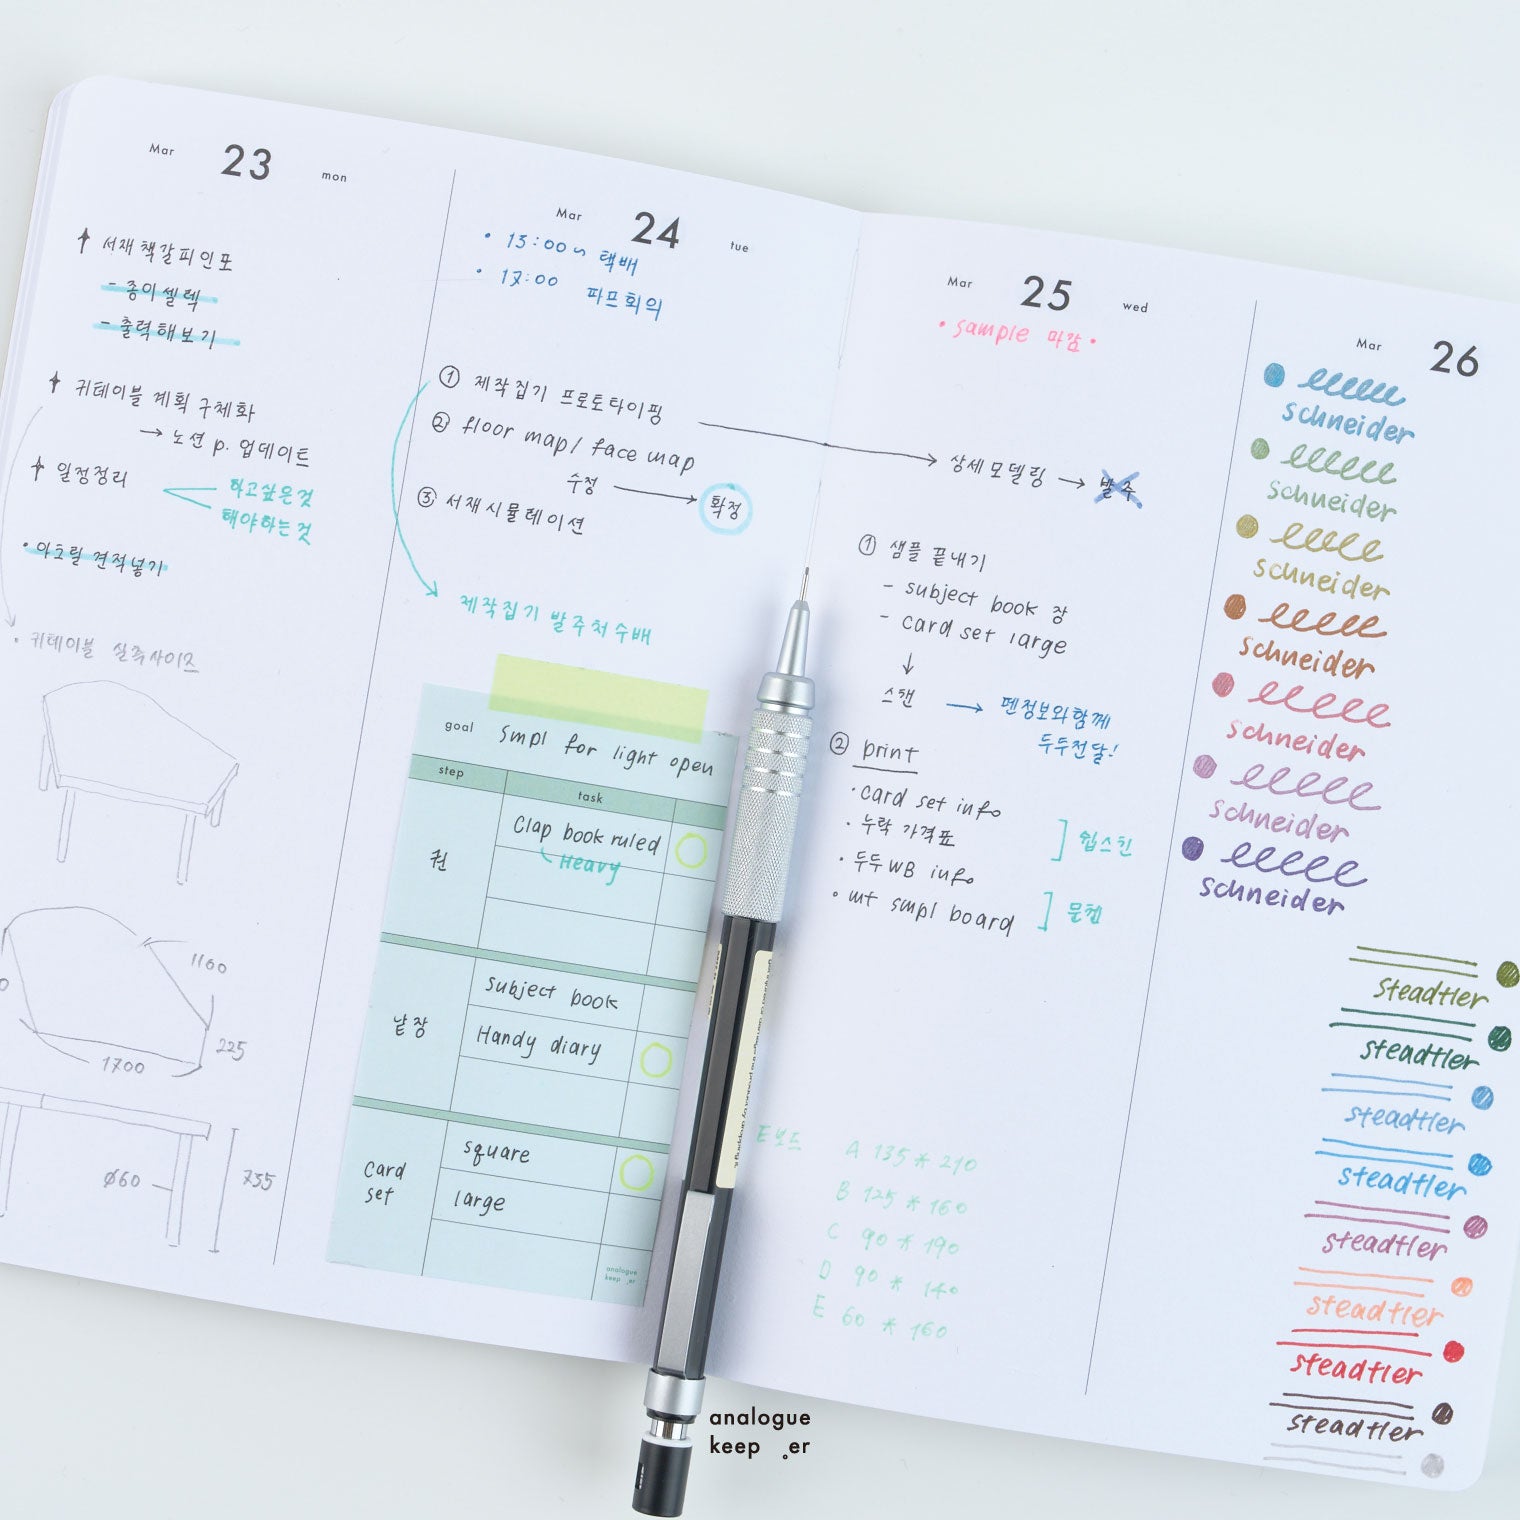 Mar 23 mon
서재 책갈피 인포
- 종이 셀렉
- 출력해보기
귀테이블 계획 구체화
→ 노션 p. 업데이트
일정정리
하고싶은것
해야하는것
• 아크릴 견적넣기
• 귀테이블 실측사이즈
1160
225
1700
ø60
755
Mar 24 tue
• 15:00~ 택배
• 17:00 파프회의
① 제작집기 프로토타이핑
② floor map / face map
수정 → 확정
③ 서재시뮬레이션
제작집기 발주처 수배
goal smpl for light open
step task
권
Clap book ruled
Heavy
낱장
subject book
Handy diary
card
set
square
large
analogue
keep .er
Mar 25 wed
• sample 마감 •
상세모델링 → 발주
① 샘플 끝내기
- subject book 장
- card set large
↓
스캔 → 펜정보와함께
두두전달!
② print
• card set info
• 누락 가격표
• 두두WB info
쉽스킨
• mt smpl board
문켄
E보드
A 135 * 210
B 125 * 160
C 90 * 190
D 90 * 140
E 60 * 160
Mar 26
schneider
schneider
schneider
schneider
schneider
schneider
schneider
steadtler
steadtler
steadtler
steadtler
steadtler
steadtler
steadtler
steadtler
analogue
keep .er